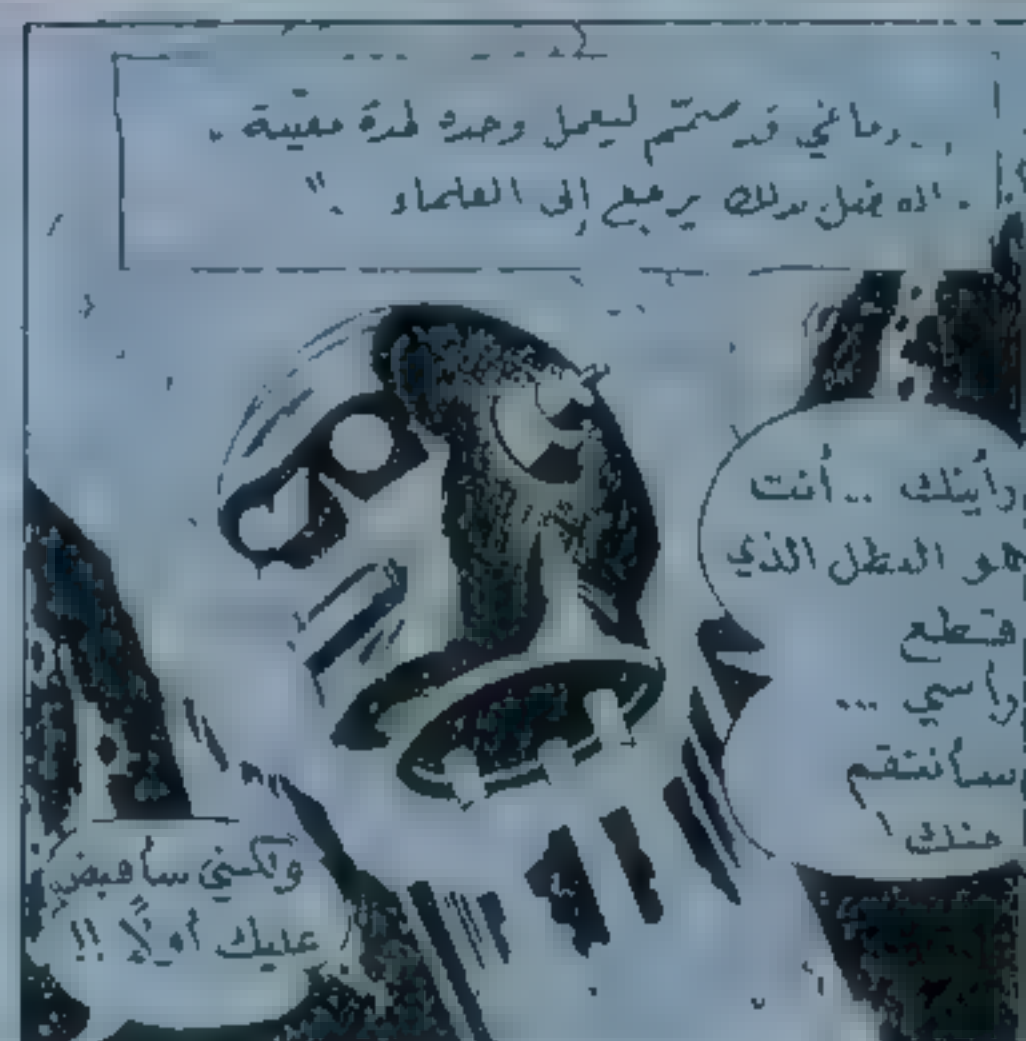 دماغي قد صمّم ليعمل وحده لمدة معيّنة .
بذلك يرجع إلى العلماء "
رأيتك .. أنت
هو البطل الذي
قطع
رأسي ...
سأنتقم
منك
ولكنّي سأقبض
عليك أولًا !!